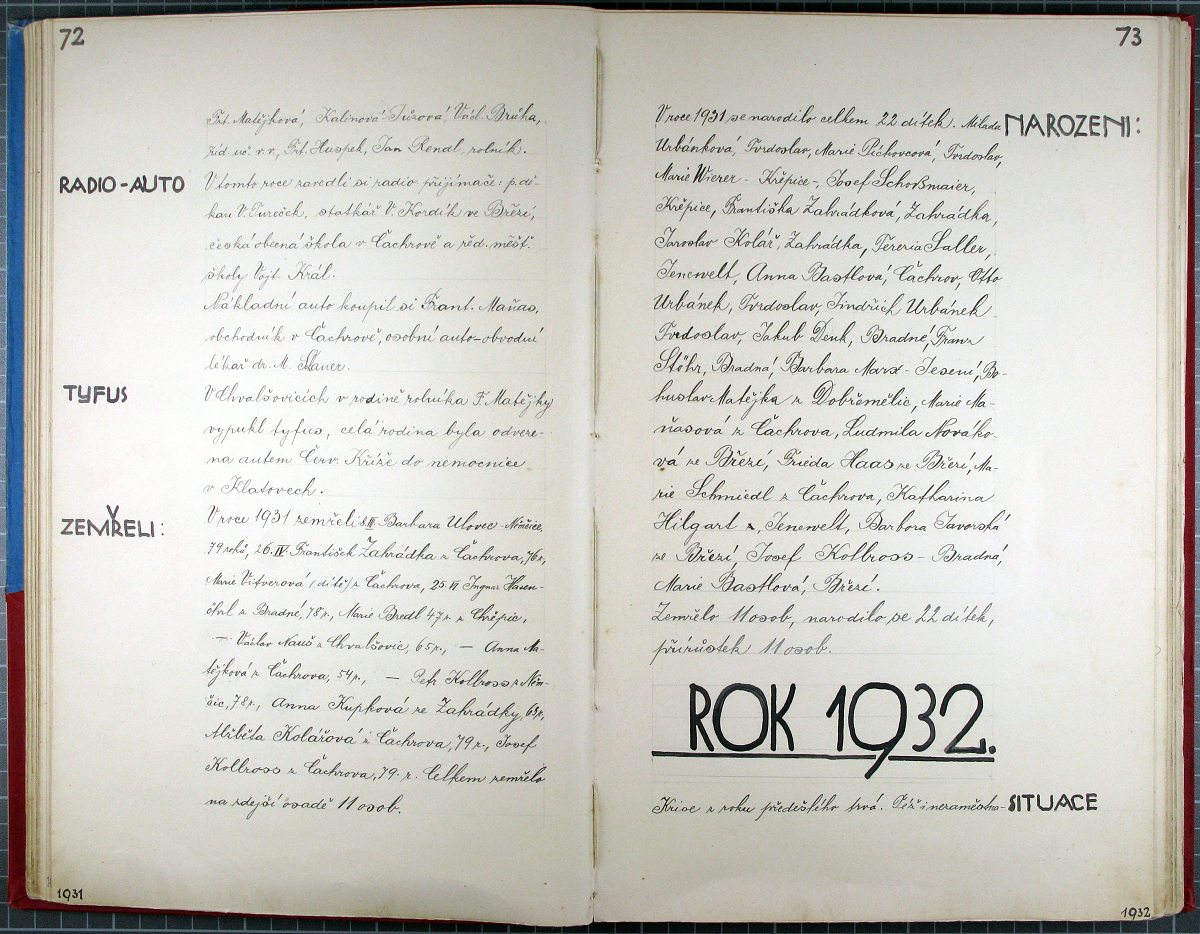 72
Frt. Matějková, Kalinová-Tůzová, Václ. Brůha,
říd. uč. v. v., Frt. Huspek, Jan Rendl, rolník.
RADIO-AUTO
V tomto roce zavedli si radio přijímače: p. dě-
kan V. Tureček, statkář V. Kordík ve Březí,
česká obecná škola v Čachrově a řed. měšť.
školy Vojt. Král.
Nákladní auto koupil si Frant. Maňas,
obchodník v Čachrově, osobní auto-obvodní
lékař dr. M. Slauer.
TYFUS
V Chvalšovicích v rodině rolníka F. Matějky
vypukl tyfus, celá rodina byla odveze-
na autem Červ. Kříže do nemocnice
v Klatovech.
ZEMŘELI:
V roce 1931 zemřeli: 8.III Barbara Ulovec - Němčice,
79 roků, 26.IV. František Zahrádka z Čachrova, 76 r.,
Marie Vitverová (dítě) z Čachrova, 25.VI Ingnar Hasen-
öhrl z Bradné, 78 r., Marie Bredl 47 r. z Chřepic,
— Václav Nauš z Chvalšovic, 65 r., — Anna Ma-
tějková z Čachrova, 54 r., — Petr Kollross z Něm-
čic, 78 r., Anna Kupková ze Zahrádky, 63 r.,
Alžběta Kolářová z Čachrova, 79 r., Josef
Kollross z Čachrova, 79. r. Celkem zemřelo
na zdejší osadě 11 osob.
1931
73
NAROZENI:
V roce 1931 se narodilo celkem 22 dítek. Milada
Urbánková, Tvrdoslav, Marie Pichovcová, Tvrdoslav,
Marie Wierer - Křepice -, Josef Schoßmaier,
Křepice, Františka Zahrádková, Zahrádka,
Jaroslav Kolář, Zahrádka, Terezia Saller,
Jenewelt, Anna Bastlová, Čachrov, Otto
Urbánek, Tvrdoslav, Jindřich Urbánek
Tvrdoslav, Jakub Denk, Bradné, Franz
Stöhr, Bradná, Barbara Marx - Jesení, Bo-
huslav Matějka z Dobřemělic, Marie Ma-
ňasová z Čachrova, Ludmila Nováko-
vá ze Březí, Frieda Haas ze Březí, Ma-
rie Schmiedl z Čachrova, Katharina
Hilgart z, Jenewelt, Barbora Javorská
ze Březí, Josef Kollross - Bradná,
Marie Bastlová, Březí.
Zemřelo 11 osob, narodilo se 22 dítek,
přírůstek 11 osob.
ROK 1932.
Krise z roku předešlého trvá. Též i nezaměstna-
SITUACE
1932